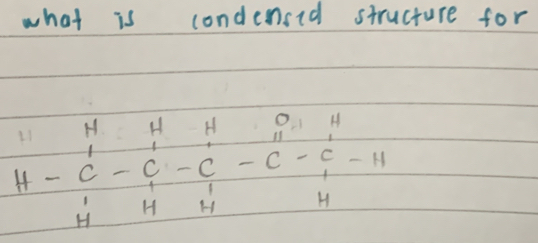 what is condensed structure for
H H H O H
H - C - C - C - C - C - H
H H H H